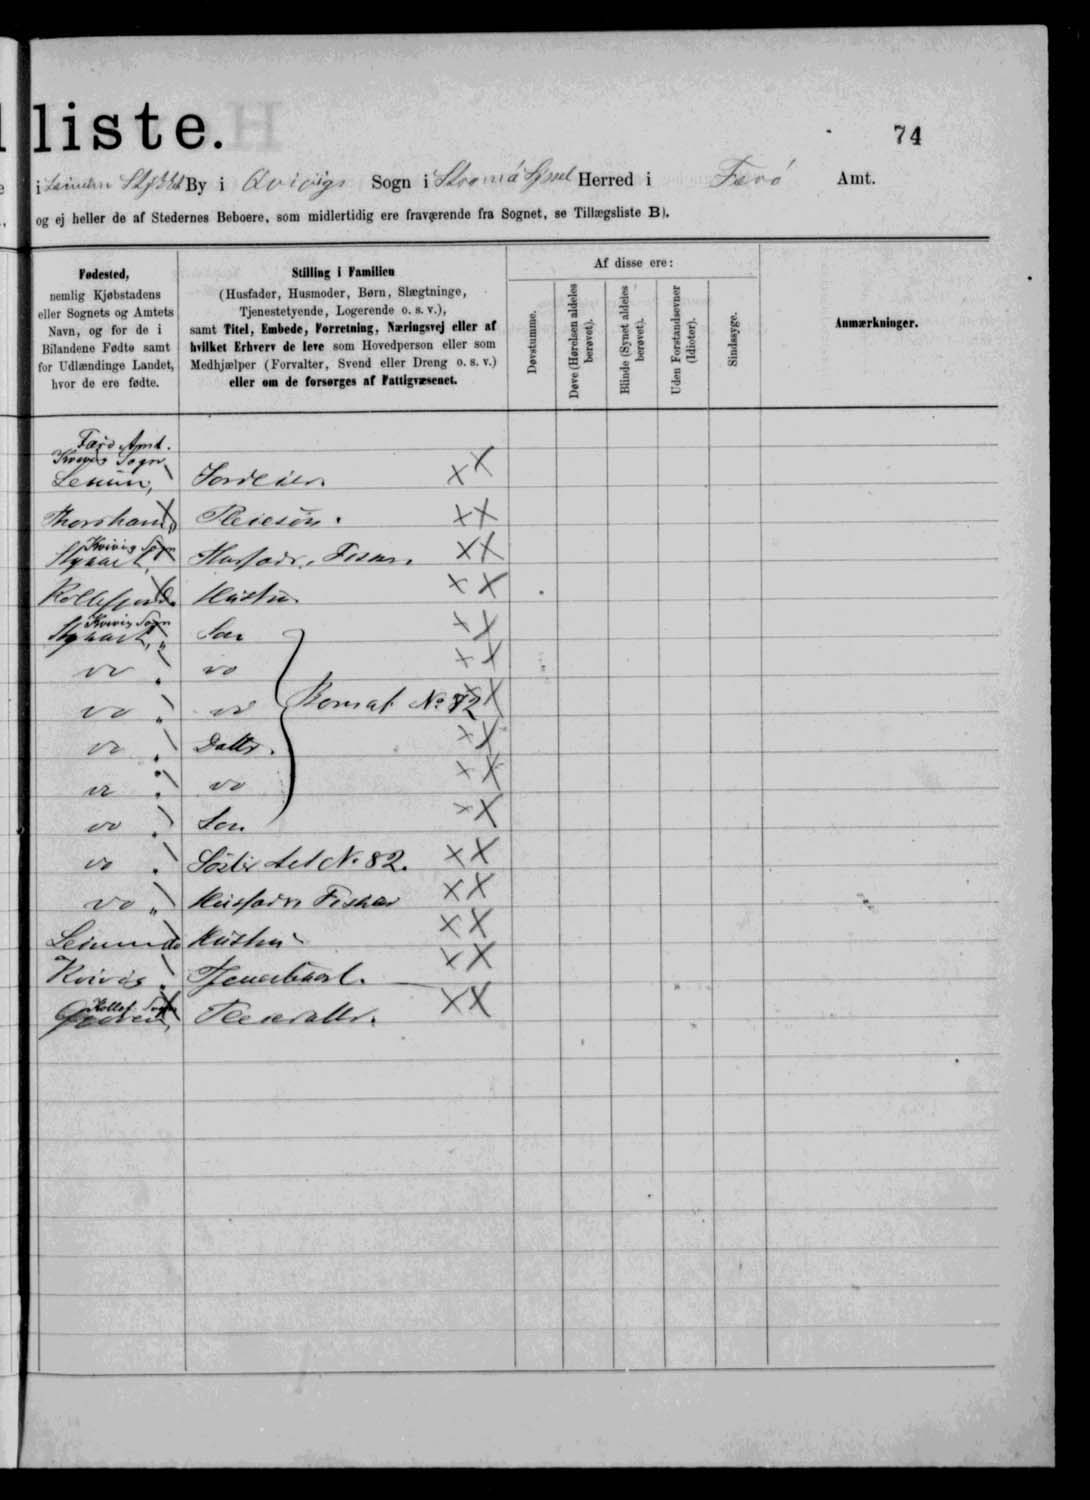 liste.
74
i Leinum By i Qvivigs Sogn i Strømø Syssel Herred i Færø Amt.
og ej heller de af Stedernes Beboere, som midlertidig ere fraværende fra Sognet, se Tillægsliste B).
Fødested,
nemlig Kjøbstadens
eller Sognets og Amtets
Navn, og for de i
Bilandene Fødte samt
for Udlændinge Landet,
hvor de ere fødte.
Stilling i Familien
(Husfader, Husmoder, Børn, Slægtninge,
Tjenestetyende, Logerende o. s. v.),
samt Titel, Embede, Forretning, Næringsvej eller af
hvilket Erhverv de leve som Hovedperson eller som
Medhjælper (Forvalter, Svend eller Dreng o. s. v.)
eller om de forsørges af Fattigvæsenet.
Af disse ere:
Døvstumme.
Døve (Hørelsen aldeles
berøvet).
Blinde (Synet aldeles
berøvet).
Uden Forstandsevner
(Idioter).
Sindssyge.
Anmærkninger.
Færø Amt.
Kvivig Sogn
Leinum, Jordeier. X X
Thorshavn Pleiesøn. X X
Kvivig Sogn
Husfader, Fisker. X X
Kollefjord Hustru X X
Kvivig Sogn
Søn X X
do do X X
do do Barn af No 82 X X
do Datter. X X
do do X X
do Søn X X
do Søster til No 82. X X
do Husfader Fisker X X
Leinum Hustru X X
Kvivig X X
Kollef. Sogn
Pleiedatter. X X